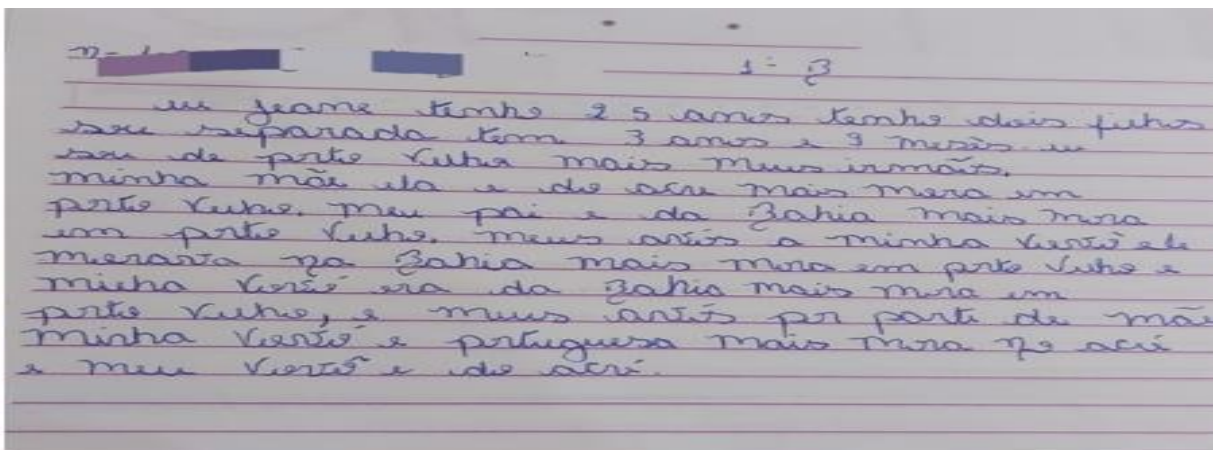 1º B
eu Jeame tenho 25 anos tenho dois filhos
sou separada tem 3 anos e 9 mesês eu
sou de porto velho mais meus irmãos.
minha mãe ela e do acre mais mora em
porto velho. meu pai e da Bahia mais mora
em porto velho. meus avós a minha ele
morava na Bahia mais mora em porto velho e
minha era da Bahia mais mora em
porto velho, e meus avós por parte de mãe
minha e portuguesa mais mora no acré
e meu e do acré.